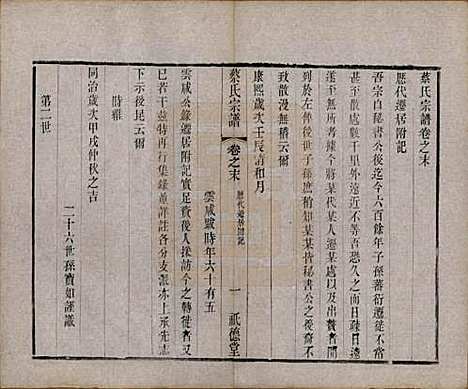 蔡氏宗譜卷之末
歷代遷居附記
吾宗自秘書公迄今六百餘年子孫蕃衍遷徙不一
甚至散處數千里外遠近不等吾恐久之而日疎日遠
遂至無所考據今將某代某人遷某處以及始遷某處
列於左俾後世子孫庶有知某某皆秘書公之後裔不
致散漫無稽云爾
康熙歲次壬辰清和月
雲咸跋時年六十有五
蔡氏宗譜
卷之末
歷代遷居附記
一
祇德堂
雲咸公錄遷居附記實足資後人採訪今之轉徙者又
已若干壹特再行集錄並詳註各分支派亦上承先志
下示後昆云爾
時雍
同治歲次甲戌仲秋之吉
二十六世孫寶如謹識
第二世